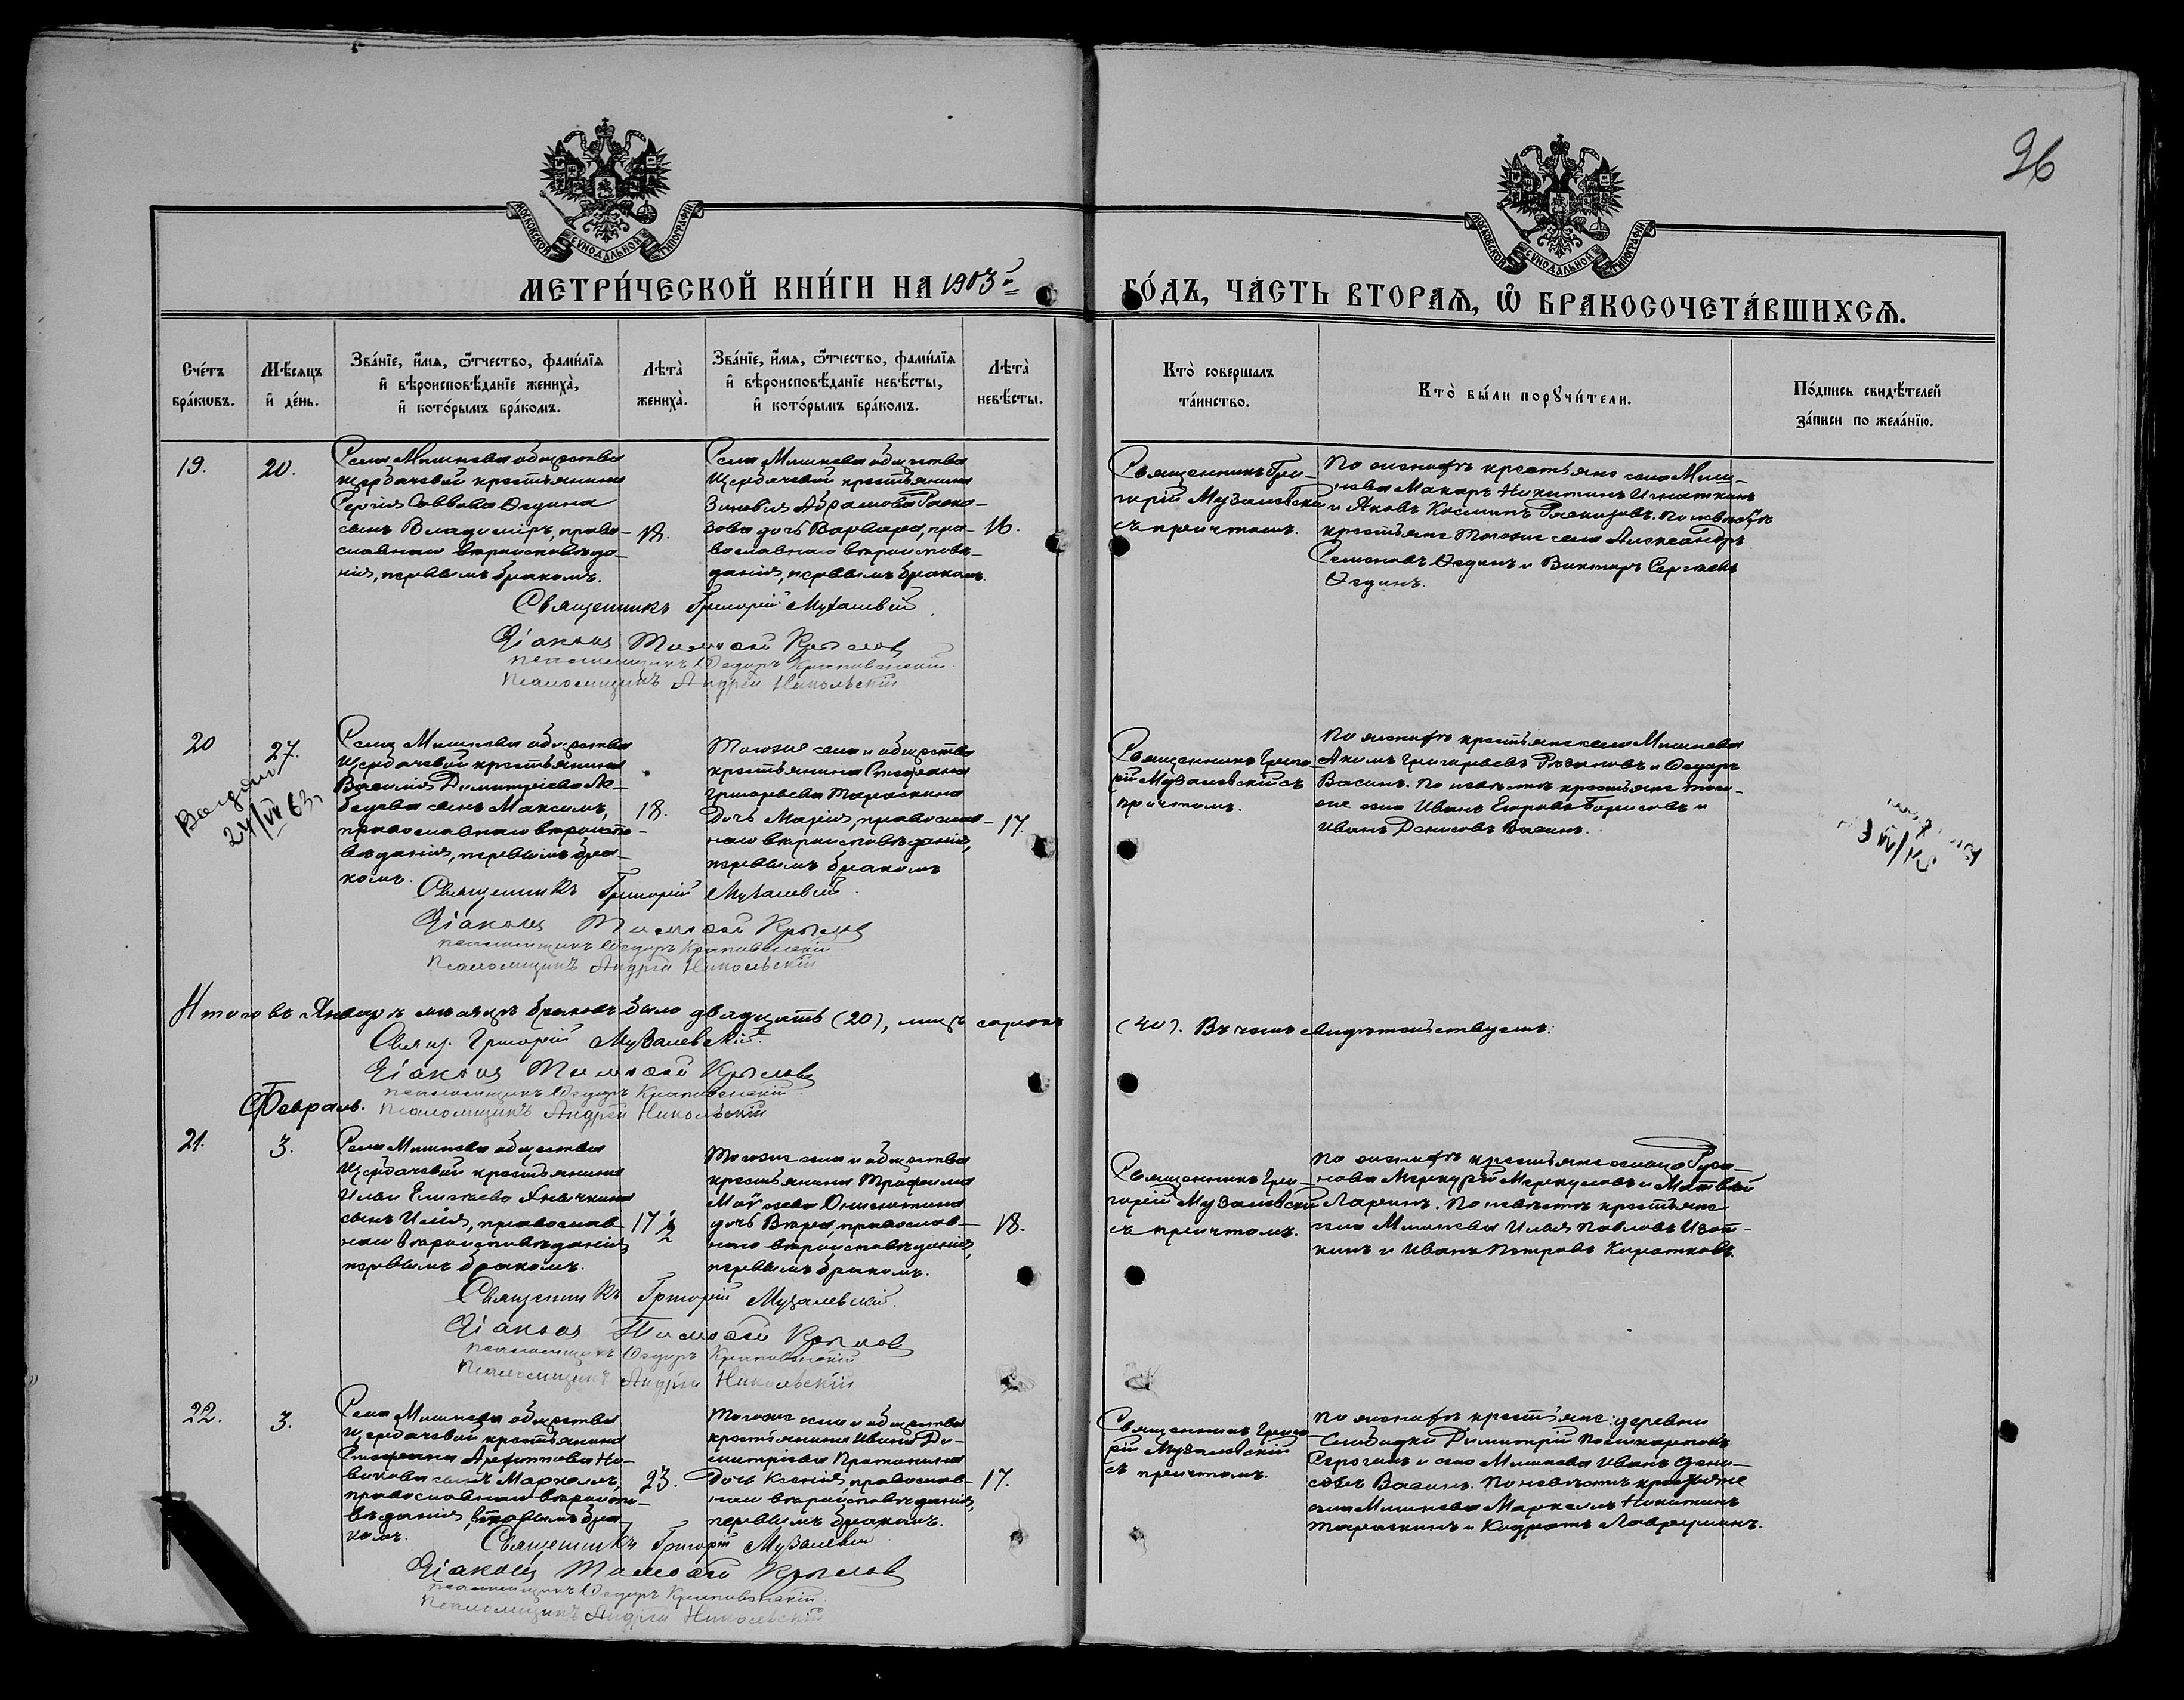 96
МОСКОВСКОЙ СѴНОДАЛЬНОЙ ТИПОГРАФІИ
МОСКОВСКОЙ СѴНОДАЛЬНОЙ ТИПОГРАФІИ
МЕТРИ́ЧЕСКОЙ КНИ́ГИ НА 1903й
ГО́ДЪ, ЧА́СТЬ ВТОРАѦ, Ѿ БРАКОСОЧЕТА́ВШИХСѦ.
Сче́тъ
бра́кѡвъ.
Мѣ́сяцъ
и҆ де́нь.
Зва́нїе, и҆́мя, ѻ҆́тчество, фами́лїя
и҆ вѣроисповѣ́данїе жениха̀,
и҆ кото́рымъ бра́комъ.
Лѣ́та
жениха̀.
Зва́нїе, и҆́мя, ѻ҆́тчество, фами́лїя
и҆ вѣроисповѣ́данїе невѣ́сты,
и҆ кото́рымъ бра́комъ.
Лѣ́та
невѣ́сты.
Кто̀ совершалъ
та́инство.
Кто̀ бы́ли порꙋчи́тели.
По́дпись свидѣ́телей
за́писи по жела́нїю.
19.
20.
Села Мишнева общества
крестьянина
Сергія Саввова Ѳедина
сынъ Владиміръ, право-
славнаго вѣроисповѣда-
нія, первымъ бракомъ.
18.
Села Мишнева общества
крестьянина
Зиновія Абрамова
дочь Варвара, пра-
вославнаго вѣроисповѣ-
данія, первымъ бракомъ.
16.
Священникъ Гри-
горій Музалевскій
съ причтомъ.
По женихѣ крестьяне села Миш-
нева Макаръ Никитинъ Игнаткинъ
и Яковъ Косминъ. По невѣстѣ
крестьяне того же села Александръ
Семеновъ Ѳединъ и Викторъ Сергѣевъ
Ѳединъ.
Священникъ Григорій Музалевскій
Діаконъ Тимоѳей Крылов
Псаломщикъ Ѳедоръ Крапивенскій
Псаломщикъ Андрей Никольскій
20
27.
Выдан
24/VI 63г
Села Мишнева общества
крестьянина
Василія Димитріева Ле-
бедева сынъ Максимъ,
православнаго вѣроиспо-
вѣданія, первымъ бра-
комъ.
18.
Того же села и общества
крестьянина Стефана
Григорьева Тараскина
дочь Марія, православ-
наго вѣроисповѣданія,
первымъ бракомъ
17.
Священникъ Григо-
рій Музалевскій съ
причтомъ.
По женихѣ крестьяне села Мишнева
Акимъ Григорьевъ Рязановъ и Ѳедоръ
Васинъ. По невѣстѣ крестьяне того-
же села Иванъ Егоровъ Борисовъ и
Иванъ Денисовъ Васинъ.
Священникъ Григорій Музалевскій
Діаконъ Тимоѳей Крылов
Псаломщикъ Ѳедоръ Крапивенскій
Псаломщикъ Андрей Никольскій
Итого въ Январѣ мѣсяцѣ браковъ было двадцать (20), лицъ сорокъ
(40). Въ чемъ свидѣтельствуемъ:
Свящ. Григорій Музалевскій.
Діаконъ Тимоѳей Крылов
Псаломщикъ Ѳедоръ Крапивенскій
Псаломщикъ Андрей Никольскій
Февраль.
21.
3.
Села Мишнева общества
крестьянина
Ильи Елисѣева Янычкина
сынъ Илія, православ-
наго вѣроисповѣданія
первымъ бракомъ.
17 ½
Того же села и общества
крестьянина Трофима
Моѵсеева Онисюткина
дочь Вѣра, православ-
наго вѣроисповѣданія,
первымъ бракомъ.
18.
Священникъ Гри-
горій Музалевскій
съ причтомъ.
По женихѣ крестьяне сельца Руса-
нова Меркурій Меркуловъ и Матвѣй
Ларинъ. По невѣстѣ крестьяне
села Мишнева Илья Павловъ Изот-
кинъ и Иванъ Петровъ Коротковъ.
Священникъ Григорій Музалевскій.
Діаконъ Тимоѳей Крылов
Псаломщикъ Ѳедоръ Крапивенскій
Псаломщикъ Андрей Никольскій
22.
3.
Села Мишнева общества
крестьянина
Стефана Арефиева Но-
викова сынъ
православнаго вѣроиспо-
вѣданія, вторымъ бра-
комъ.
23.
Того же села и общества
крестьянина Ивана Ди-
митріева
дочь Ксенія, православ-
наго вѣроисповѣданія,
первымъ бракомъ.
17.
Священникъ Григо-
рій Музалевскій
съ причтомъ.
По женихѣ крестьяне: деревни
Слободки Димитрій Поликарповъ
Серегинъ и села Мишнева Иванъ Дени-
совъ Васинъ. По невѣстѣ крестьяне
села Мишнева Маркеллъ Никитинъ
Тараскинъ и Кодратъ Лаврушинъ.
Священникъ Григорій Музалевскій
Діаконъ Тимоѳей Крылов
Псаломщикъ Ѳедоръ Крапивенскій
Псаломщикъ Андрей Никольскій